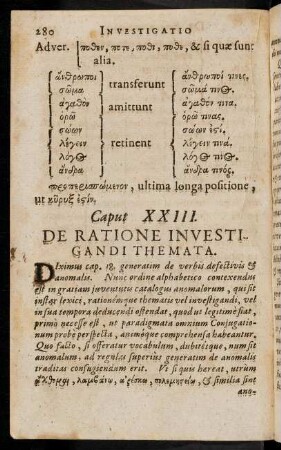 280 INVESTIGATIO
Adver. ποθεν, ποτε, ποθι, ποθν, & si quæ sunt
alia.
ἄνθρωποι
σῶμα
ἀγαθὸν
ὁρῶ
σώων
λέγειν
λόγος
ἄνδρα
transferunt
amittunt
retinent
ἄνθρωποί τινες.
σῶμά τινος.
ἀγαθόν τινα.
ὁρῶ τινας.
σώων ἐστί.
λέγειν τινά.
λόγος τινός.
ἄνδρα τινός.
προπερισπώμενον, ultima longa positione,
ut κῆρυξ ἐστίν.
Caput XXIII.
DE RATIONE INVESTI-
GANDI THEMATA.
Diximus cap. 18. generatim de verbis defectivis &
anomalis. Nunc ordine alphabetico contexendus
est in gratiam juventutis catalogus anomalorum, qui sit
instar lexici, rationemque thematis vel investigandi, vel
in sua tempora deducendi ostendat, quod ut legitimè fiat,
primò necesse est, ut paradigmata omnium Conjugatio-
num probè perspecta, animóque comprehensa habeantur.
Quo facto, si offeratur vocabulum, dubitésque, num sit
anomalum, ad regulas superiùs generatim de anomalis
traditas confugiendum erit. Ut si quis hæreat, utrùm
λαμβάνω, & similia sint
ano-